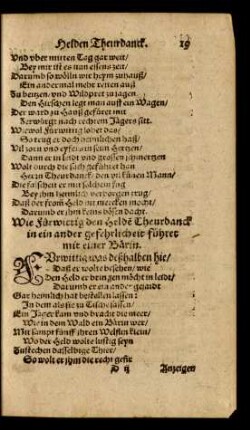 Helden Theurdanck. 19
Und uber mitten Tag gat weit/
Bey mir ist es nun essens zeit/
Darumb so wöllń wir heym zuhauß/
Ein ander mal mehr reiten auß
Zu beitzen/ und Wildpret zu jagen
Den Hirschen legt man auff ein Wagen/
Der ward zu Hauß geführt mit
nach rechtem Jägers sitt.
Wiewol Fürwittig lobet das/
So trug er doch heimlichen haß/
in seim Hertzen/
Dann er in leidt und grossen schmertzen
Wolt durch die sach gefähret han
Herrn Theurdanck/ den vil künen Mann/
Die falschen er mit
Bey ihm heimlich verborgen trug/
Daß der from Held nit mercken mocht/
Darumb er ihm keins bösen dacht.
Wie Fürwittig den Held Theurdanck
in ein ander gefehrlicheit führet
mit einer Bärin.
FUrwittig was deßhalben hie/
Daß er wolte besehen/ wie
Den Held er bringen möcht in leidt/
Darumb er ein ander gejaidt
Gar heimlich hat bestellen lassen:
In dem also sie zu Tische sassen/
Ein Jäger kam und bracht die meer/
Wie in dem Wald ein Bärin wer/
Mit sampt fünff ihren Welfflin klein/
Wo der Held wolte lustig seyn
Zustechen dasselbige Thier/
So wolt er ihm die recht gfir
D ij Anzeigen